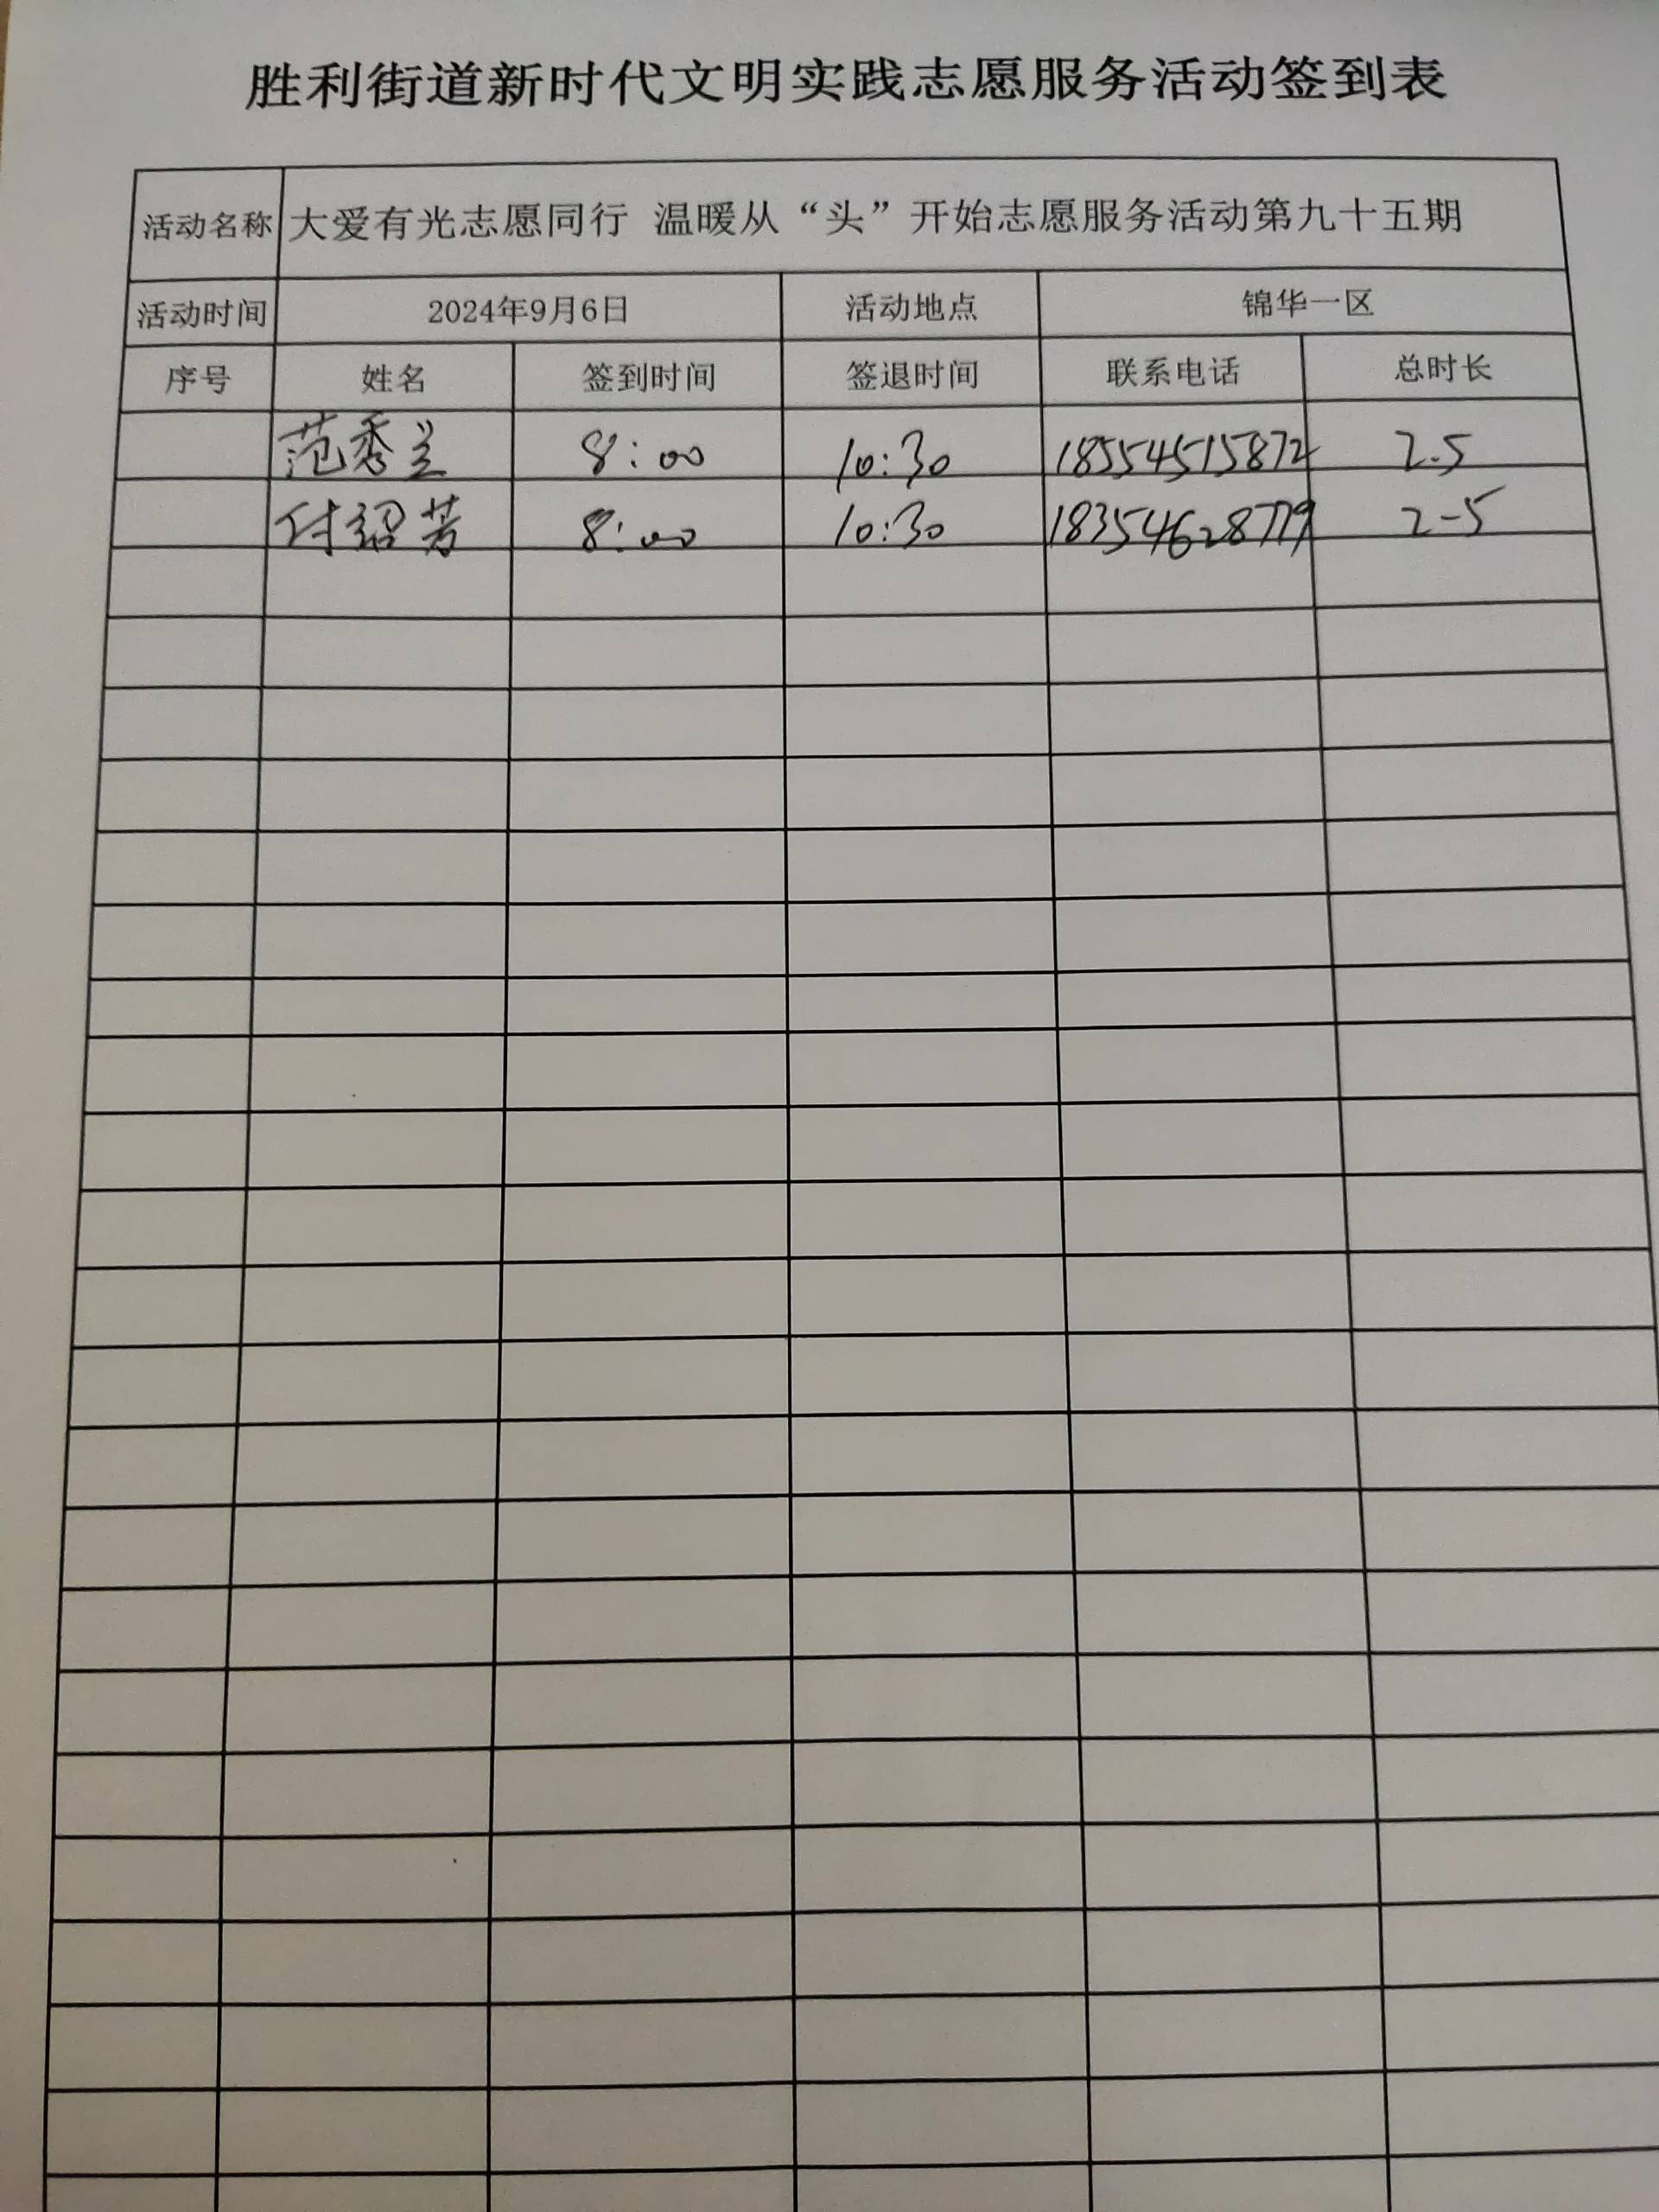 胜利街道新时代文明实践志愿服务活动签到表
活动名称 大爱有光志愿同行 温暖从“头”开始志愿服务活动第九十五期
活动时间 2024年9月6日 活动地点 锦华一区
序号 姓名 签到时间 签退时间 联系电话 总时长
范秀兰 8:00 10:30 18554515872 2.5
付绍芳 8:00 10:30 18354628779 2-5